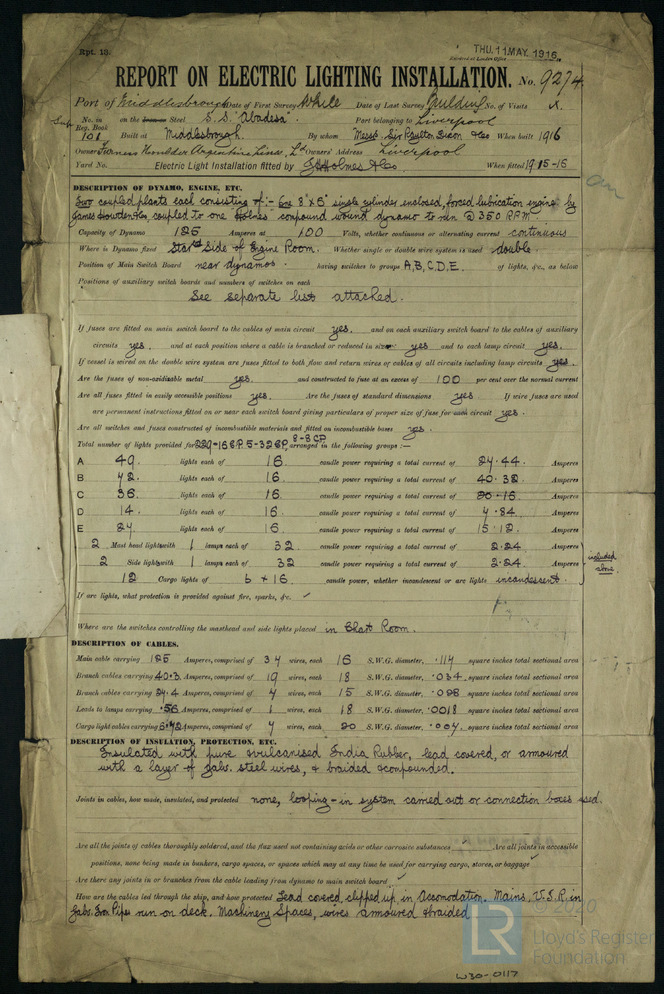 Rpt. 13.
THU. 11 MAY. 1916
Received at London Office
REPORT ON ELECTRIC LIGHTING INSTALLATION. No. 9274.
Port of Middlesbrough Date of First Survey While Date of Last Survey Building No. of Visits
No. in on the Iron or Steel S.S. "Abadesa" Port belonging to Liverpool
Reg. Book
101 Built at Middlesbrough. By whom Messrs Sir Raylton Dixon & Co When built 1916
Owners Francis Houlder Argentine Lines, Ltd Owners' Address Liverpool
Yard No. Electric Light Installation fitted by J.H. Holmes & Co. When fitted 1915-16
DESCRIPTION OF DYNAMO, ENGINE, ETC.
Two coupled plants each consisting of:- One 8" x 6" single cylinder enclosed, forced lubrication engine by
James Howden & Co, coupled to one Holmes compound wound dynamo to run @ 350 RPM
Capacity of Dynamo 125 Amperes at 100 Volts, whether continuous or alternating current continuous
Where is Dynamo fixed Starbd Side of Engine Room. Whether single or double wire system is used double
Position of Main Switch Board near dynamos. having switches to groups A, B, C, D, E. of lights, &c., as below
Positions of auxiliary switch boards and numbers of switches on each
See separate list attached.
If fuses are fitted on main switch board to the cables of main circuit yes. and on each auxiliary switch board to the cables of auxiliary
circuits yes. and at each position where a cable is branched or reduced in size yes and to each lamp circuit yes.
If vessel is wired on the double wire system are fuses fitted to both flow and return wires or cables of all circuits including lamp circuits yes.
Are the fuses of non-oxidizable metal yes. and constructed to fuse at an excess of 100 per cent over the normal current
Are all fuses fitted in easily accessible positions yes. Are the fuses of standard dimensions yes If wire fuses are used
are permanent instructions fitted on or near each switch board giving particulars of proper size of fuse for each circuit yes.
Are all switches and fuses constructed of incombustible materials and fitted on incombustible bases yes.
Total number of lights provided for 229-16 C.P. 5-32 C.P. 8-8 C.P. arranged in the following groups :—
A 49. lights each of 16 candle power requiring a total current of 27.44. Amperes
B 72. lights each of 16. candle power requiring a total current of 40.32 Amperes
C 36. lights each of 16. candle power requiring a total current of 20.16 Amperes
D 14. lights each of 16 candle power requiring a total current of 7.84 Amperes
E 27 lights each of 16 candle power requiring a total current of 15.12. Amperes
2 Mast head lights with 1 lamps each of 32 candle power requiring a total current of 2.24 Amperes
2 Side lights with 1 lamps each of 32 candle power requiring a total current of 2.24 Amperes
included above.
12 Cargo lights of 6 x 16 candle power, whether incandescent or arc lights incandescent.
If arc lights, what protection is provided against fire, sparks, &c. ✓
Where are the switches controlling the masthead and side lights placed in Chart Room.
DESCRIPTION OF CABLES.
Main cable carrying 125 Amperes, comprised of 37 wires, each 16 S.W.G. diameter, .117 square inches total sectional area
Branch cables carrying 40.3 Amperes, comprised of 19 wires, each 18 S.W.G. diameter, .034 square inches total sectional area
Branch cables carrying 27.4 Amperes, comprised of 7 wires, each 15 S.W.G. diameter, .028 square inches total sectional area
Leads to lamps carrying .56 Amperes, comprised of 1 wires, each 18 S.W.G. diameter, .0018 square inches total sectional area
Cargo light cables carrying 6.72 Amperes, comprised of 7 wires, each 20 S.W.G. diameter, .007 square inches total sectional area
DESCRIPTION OF INSULATION, PROTECTION, ETC.
Insulated with pure & vulcanised India Rubber, lead covered, or armoured
with a layer of galv. steel wires, & braided & compounded.
Joints in cables, how made, insulated, and protected none, looping-in system carried out or connection boxes used.
Are all the joints of cables thoroughly soldered, and the flux used not containing acids or other corrosive substances Are all joints in accessible
positions, none being made in bunkers, cargo spaces, or spaces which may at any time be used for carrying cargo, stores, or baggage ✓
Are there any joints in or branches from the cable leading from dynamo to main switch board ✓
How are the cables led through the ship, and how protected Lead covered clipped up in Accomodation. Mains, V.I.R. in
Galv. Iron Pipes run on deck. Machinery Spaces, wires armoured & braided
© 2020
LR
Lloyd's Register
Foundation
W30-0117